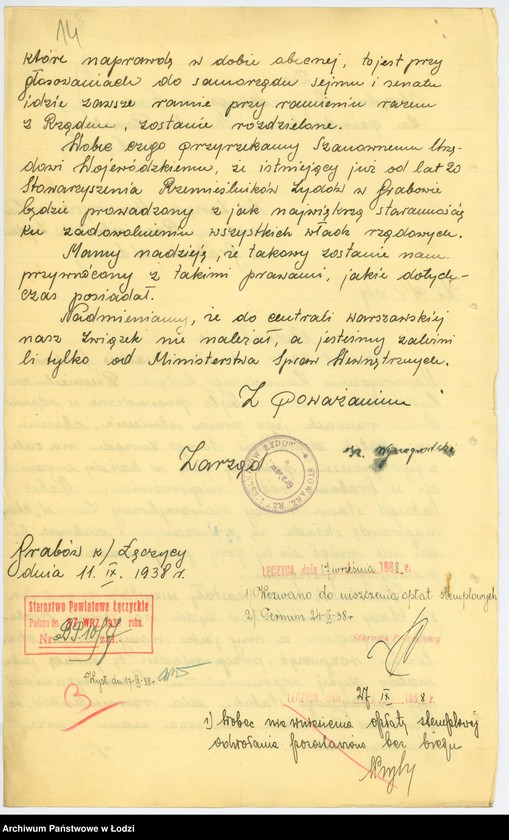 14
które naprawdę w dobie obecnej, to jest przy
głosowaniach do samorządu sejmu i senatu
idzie zawsze ramię przy ramieniu razem
z Rządem, zostanie rozdzielone.
Wobec czego przyrzekamy Szanownemu Urzę-
dowi Wojewódzkiemu, że istniejący już od lat 20
Stowarzyszenia Rzemieślników Żydów w Grabowie
będzie prowadzony z jak największą starannością
ku zadowolnieniu wszystkich władz rządowych.
Mamy nadzieję, że takowy zostanie nam
przywrócony z takimi prawami, jakie dotych-
czas posiadał.
Nadmieniamy, że do centrali warszawskiej
nasz związek nie należał, a jesteśmy zależni
li tylko od Ministerstwa Spraw Wewnętrznych.
Z poważaniem
Zarząd
STOWARZ. RZEMIEŚLNIKÓW ŻYDÓW
Grabów k/Łęczycy
dnia 11. IX. 1938 r.
ŁĘCZYCA, dnia 17 września 1938 r.
1) Wezwano do uiszczenia opłat stemplowych
2) Termin 24-IX-38 r
Starosta Powiatowy
Starostwo Powiatowe Łęczyckie
Podano dn. 17 WRZ. 1938 roku
Nr. zał.
Wysł. dn 17-IX-38 r.
ŁĘCZYCA, dnia 27 IX 1938 r.
1) wobec nie uiszczenia opłaty stemplowej
odwołanie pozostawiono bez biegu
Archiwum Państwowe w Łodzi